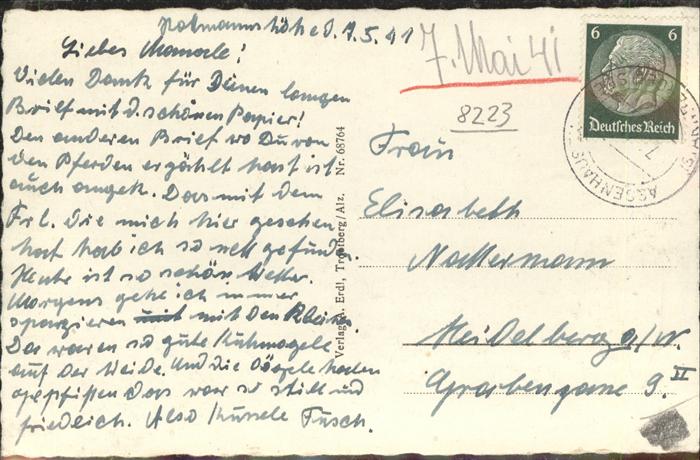 Rottmannshöhe d. 7.5.41
Liebes Mamerle!
Vielen Dank für Deinen langen
Brief mit d. schönen Papier!
Den anderen Brief wo Du von
den Pferden erzählt hast ist
auch angek. Das mit dem
Frl. die mich hier gesehen
hat hab ich so nett gefunden.
Heute ist so schön Wetter.
Morgens gehe ich immer
spazieren mit den
Da waren so gute
auf der Weide. Und die Vögele haben
gepfiffen das war so still und
friedlich. Also Kussele Fusch.
7. Mai 41
8223
Frau
Elisabeth
Nattermann
Heidelberg a/N.
Grabengasse 9. II
Verlag A. Erdl, Trostberg/Alz. Nr. 68764
6 6
Deutsches Reich
ASSENHAUS